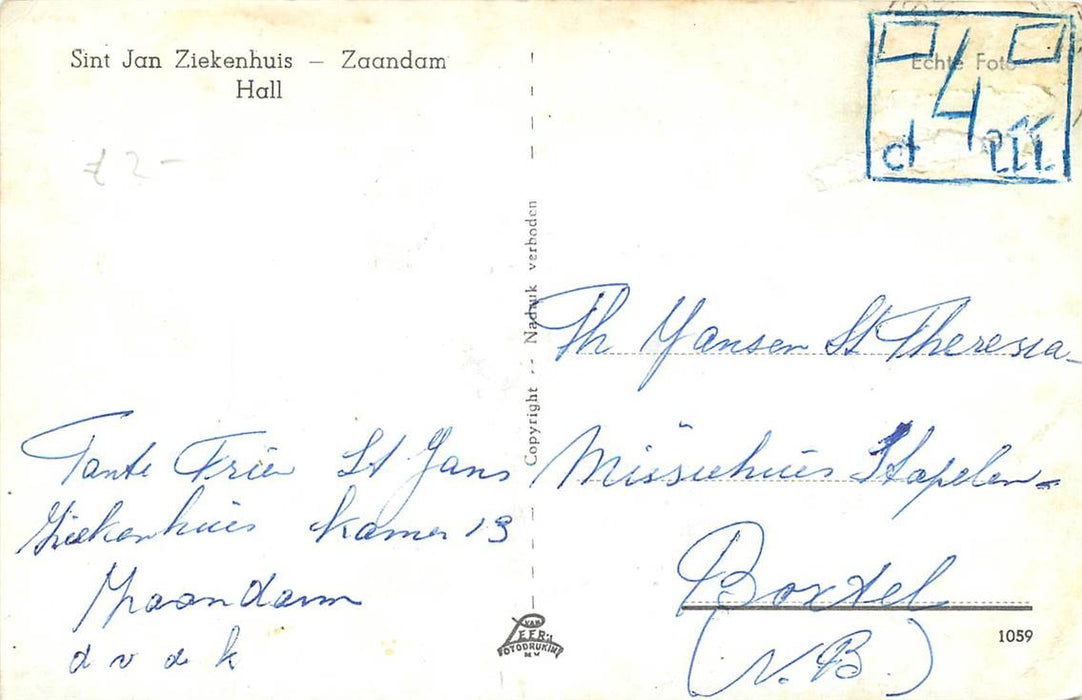 Sint Jan Ziekenhuis – Zaandam
Hall
Echte Foto
4
ct
£ 2-
Copyright -- Nadruk verboden
Th Jansen St Theresia-
Missiehuis Stapelen-
Boxtel
(N.B)
Tante Trien St Jans
Ziekenhuis kamer 13
Zaandam
d v d k
VAN
LEER's
FOTODRUKIND
N.V.
1059